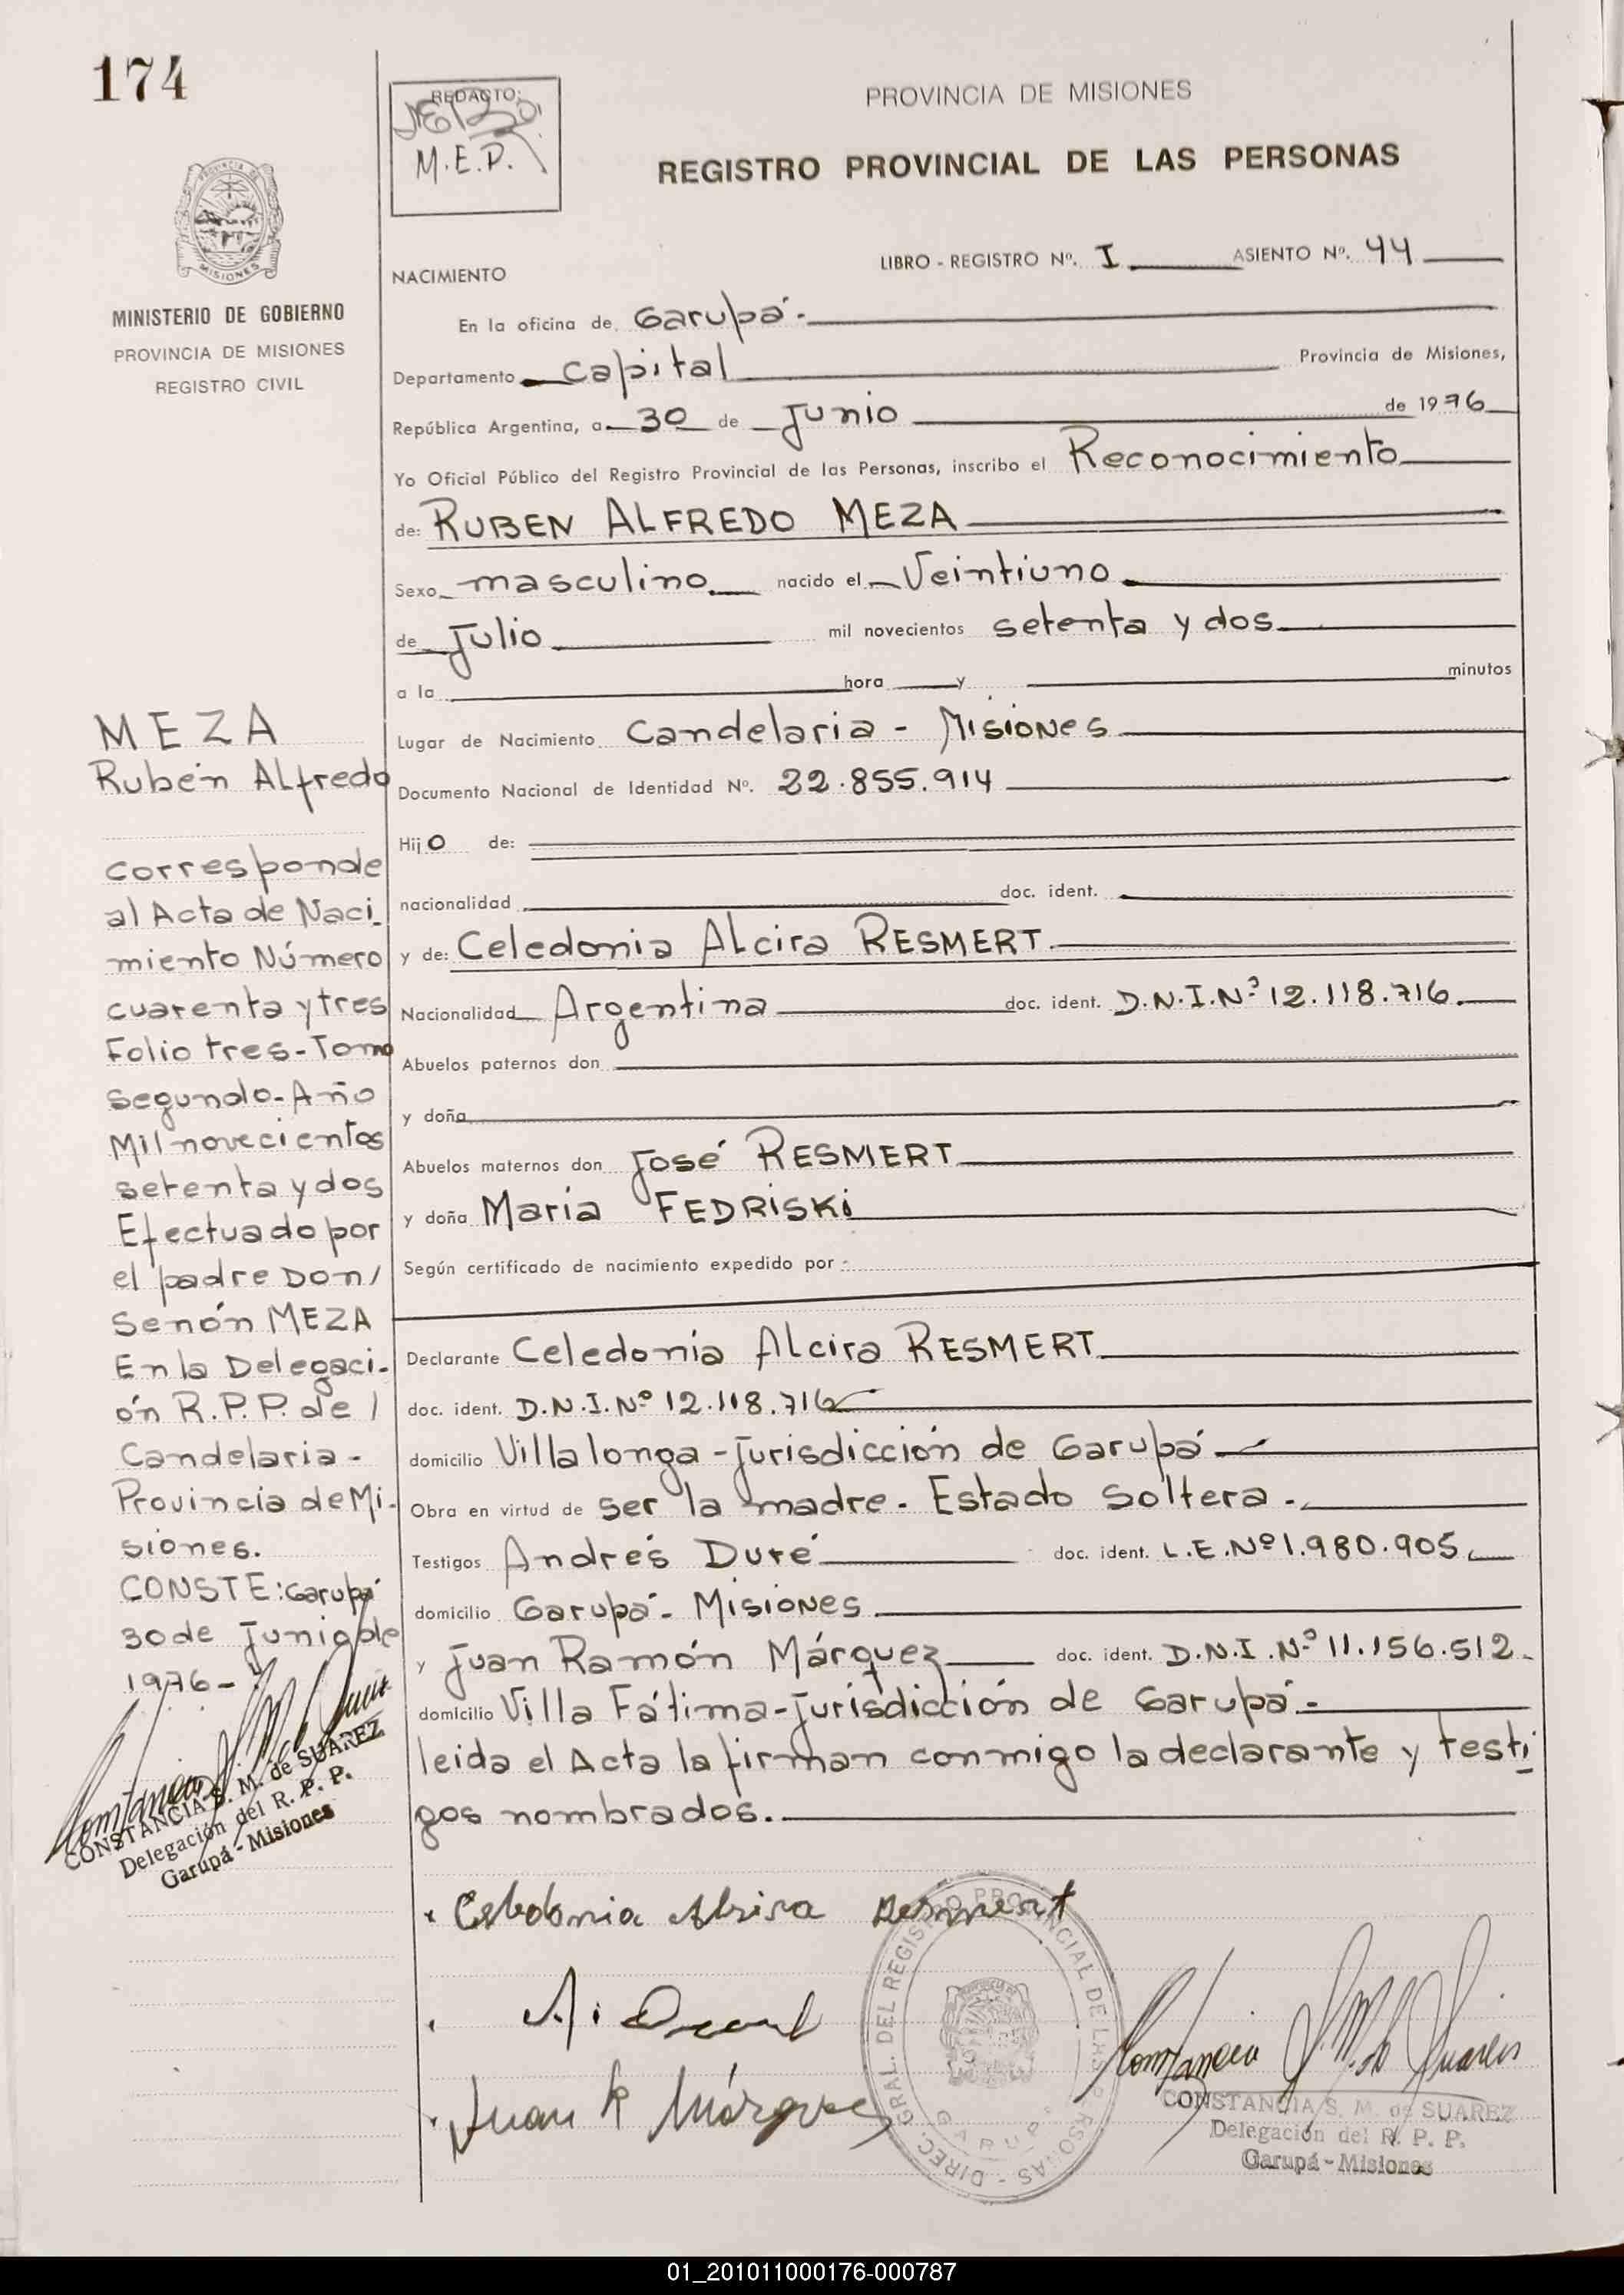 174
REDACTO:
M.E.P.
PROVINCIA DE MISIONES
REGISTRO PROVINCIAL DE LAS PERSONAS
MISIONES
MINISTERIO DE GOBIERNO
PROVINCIA DE MISIONES
REGISTRO CIVIL
LIBRO - REGISTRO Nº. I ASIENTO Nº. 44
NACIMIENTO
En la oficina de Garupá.-
Departamento Capital Provincia de Misiones,
República Argentina, a 30 de Junio de 1976
Yo Oficial Público del Registro Provincial de las Personas, inscribo el Reconocimiento
de: RUBEN ALFREDO MEZA
Sexo masculino nacido el Veintiuno
de Julio mil novecientos setenta y dos
a la hora y minutos
Lugar de Nacimiento Candelaria - Misiones
Documento Nacional de Identidad Nº. 22.855.914
Hijo de:
nacionalidad doc. ident.
y de: Celedonia Alcira RESMERT
Nacionalidad Argentina doc. ident. D.N.I.Nº 12.118.716
Abuelos paternos don
y doña
Abuelos maternos don José RESMERT
y doña María FEDRISKi
Según certificado de nacimiento expedido por :
Declarante Celedonia Alcira RESMERT
doc. ident. D.N.I.Nº 12.118.716
domicilio Villalonga - Jurisdicción de Garupá
Obra en virtud de ser la madre. Estado soltera.
Testigos Andrés Duré doc. ident. L.E.Nº 1.980.905
domicilio Garupá - Misiones
y Juan Ramón Márquez doc. ident. D.N.I.Nº 11.156.512.
domicilio Villa Fátima - Jurisdicción de Garupá.-
leida el Acta la firman conmigo la declarante y testi
gos nombrados.
MEZA
Rubén Alfredo
corresponde
al Acta de Naci
miento Número
cuarenta y tres
Folio tres - Tomo
segundo - Año
Mil novecientos
setenta y dos
Efectuado por
el padre Don/
Senón MEZA
En la Delegaci-
ón R.P.P. de /
Candelaria -
Provincia de Mi-
siones.
CONSTE: Garupá
30 de Junio de
1976 -
CONSTANCIA S. M. de SUAREZ
Delegación del R. P. P.
Garupá - Misiones
Celedonia Alcira Resmert
Juan R Márquez
DIREC. GRAL. DEL REGISTRO PROVINCIAL DE LAS PERSONAS -
GARUPA
Constancia S. M. de Suarez
CONSTANCIA S. M. de SUAREZ
Delegación del R. P. P.
Garupá - Misiones
01_201011000176-000787